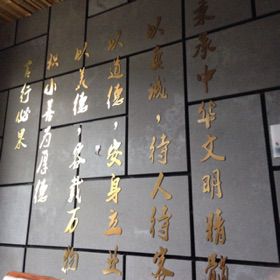 秉承中华文明精髓
以真诚，待人待客
以道德，安身立业
以美德，容载万物
积小善为厚德
言行必果